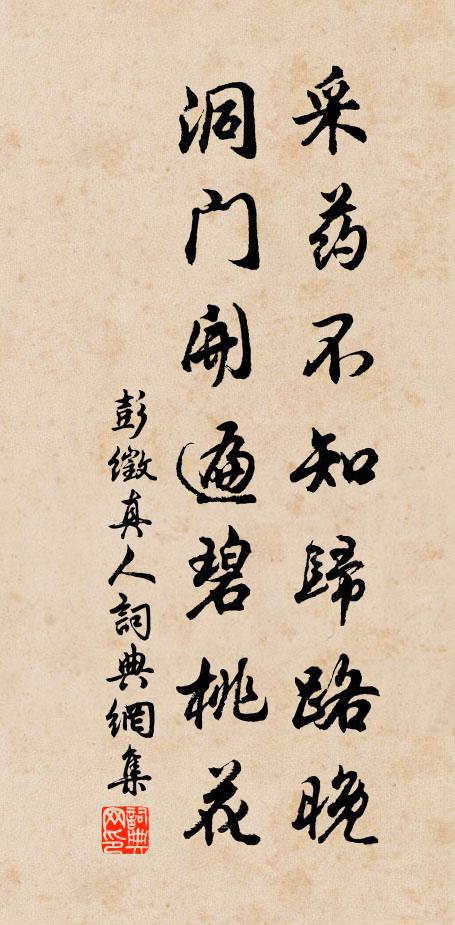 采药不知歸路晚
洞门開遍碧桃花
彭徵真人詞典網集
詞典网印